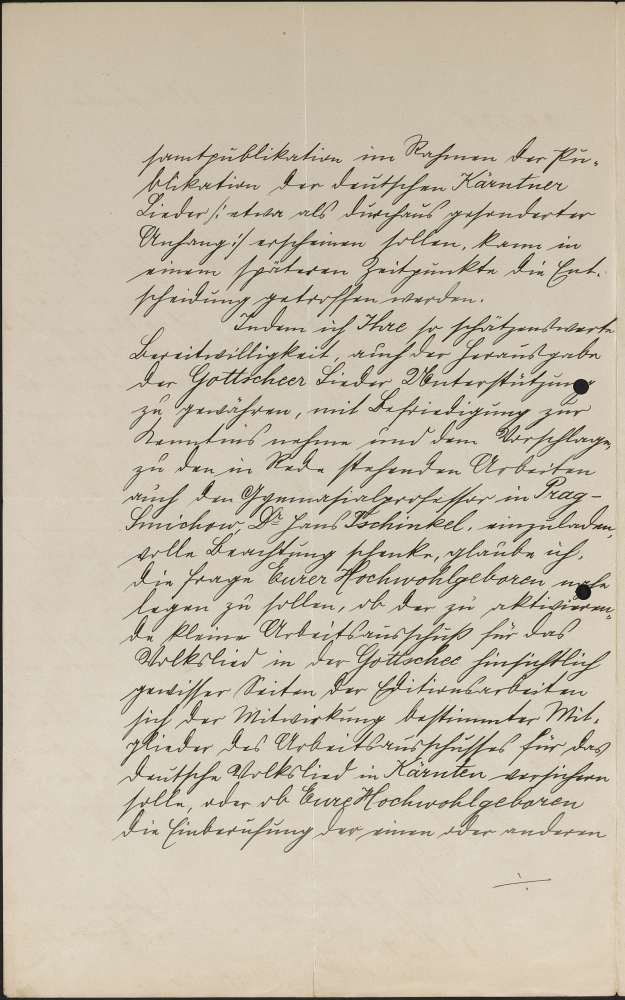 samtpublikation im Rahmen der Pu-
blikation der deutschen Kärntner
Lieder /: etwa als durchaus gesonderter
Anhang :/ erscheinen sollen, kann in
einem späteren Zeitpunkte die Ent-
scheidung getroffen werden.
Indem ich Ihre so schätzenswerte
Bereitwilligkeit, auch der Herausgabe
der Gottscheer Lieder Unterstützung
zu gewähren, mit Befriedigung zur
Kenntnis nehme und dem Vorschlage,
zu den in Rede stehenden Arbeiten
auch den Gymnasialprofessor in Prag-
Smichow, Dr Hans Tschinkel, einzuladen,
volle Beachtung schenke, glaube ich,
die Frage Eurer Hochwohlgeboren nahe
legen zu sollen, ob der zu aktivieren-
de kleine Arbeitsausschuß für das
Volkslied in der Gottschee hinsichtlich
gewisser Seiten der Editionsarbeiten
sich der Mitwirkung bestimmter Mit-
glieder des Arbeitsausschusses für das
deutsche Volkslied in Kärnten versichern
solle, oder ob Eure Hochwohlgeboren
die Einberufung des einen oder anderen